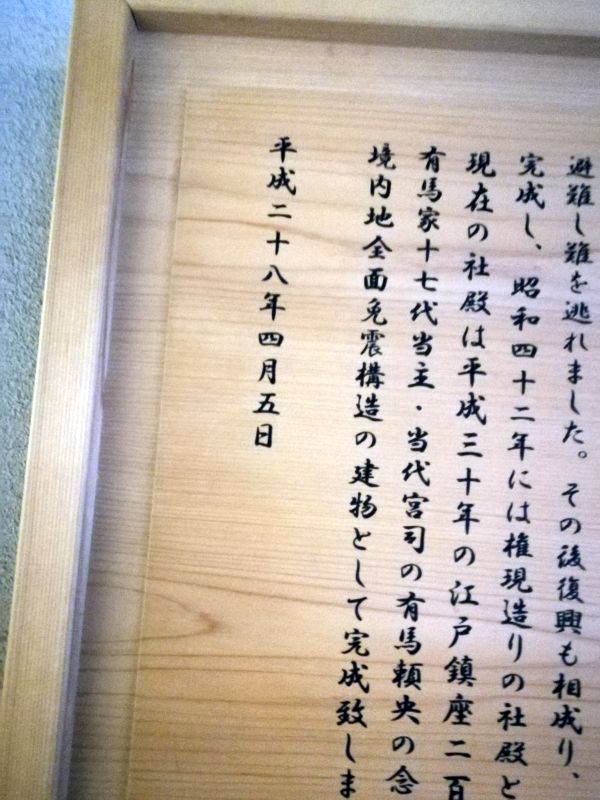 避難し難を逃れました。その後復興も相成り、
完成し、昭和四十二年には権現造りの社殿と
現在の社殿は平成三十年の江戸鎮座二百
有馬家十七代当主・当代宮司の有馬頼央の念
境内地全面免震構造の建物として完成致しま
平成二十八年四月五日